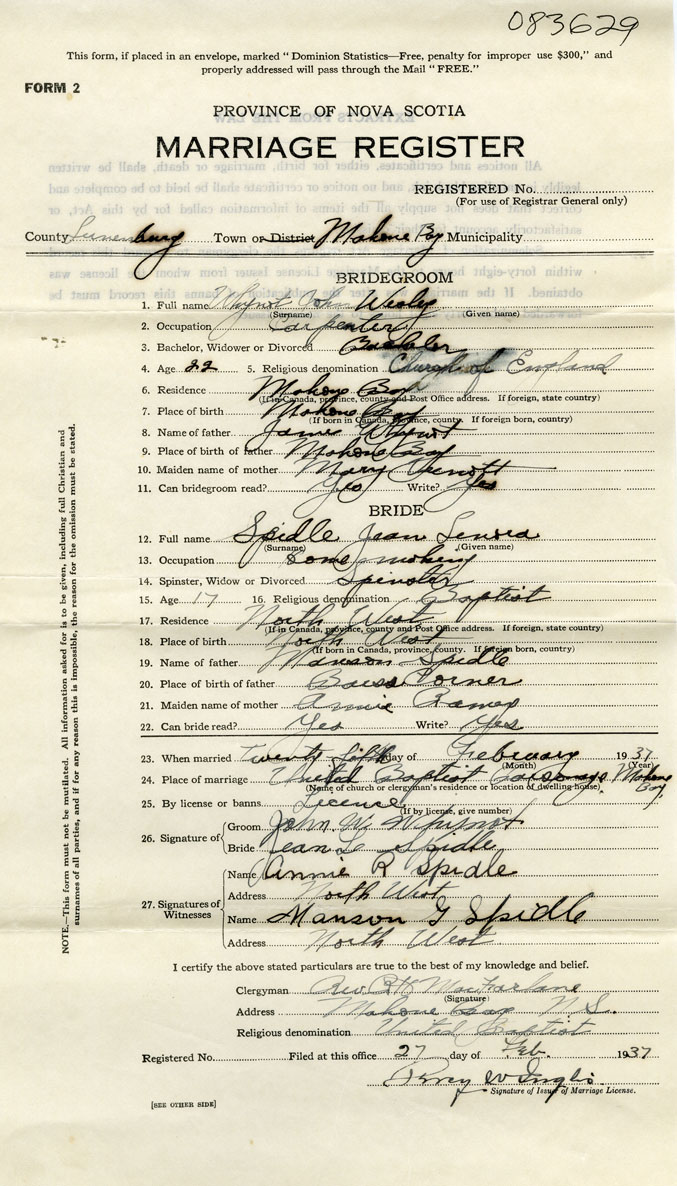 083629
This form, if placed in an envelope, marked "Dominion Statistics—Free, penalty for improper use $300," and
properly addressed will pass through the Mail "FREE."
FORM 2
PROVINCE OF NOVA SCOTIA
MARRIAGE REGISTER
REGISTERED No.
(For use of Registrar General only)
County Lunenburg Town or District Mahone Bay Municipality
BRIDEGROOM
1. Full name Whynot John Wesley
(Surname) (Given name)
2. Occupation Carpenter
3. Bachelor, Widower or Divorced Bachelor
4. Age 22 5. Religious denomination Church of England
6. Residence Mahone Bay
(If in Canada, province, county and Post Office address. If foreign, state country)
7. Place of birth Mahone Bay
(If born in Canada, province, county. If foreign born, country)
8. Name of father James Whynot
9. Place of birth of father Mahone Bay
10. Maiden name of mother Mary
11. Can bridegroom read? Yes Write? Yes
BRIDE
12. Full name Spidle Jean Lenora
(Surname) (Given name)
13. Occupation
14. Spinster, Widow or Divorced Spinster
15. Age 17 16. Religious denomination Baptist
17. Residence North West
(If in Canada, province, county and Post Office address. If foreign, state country)
18. Place of birth North West
(If born in Canada, province, county. If foreign born, country)
19. Name of father Manson Spidle
20. Place of birth of father
21. Maiden name of mother Annie
22. Can bride read? Yes Write? Yes
23. When married Twenty fifth day of February 1937
(Month) (Year)
24. Place of marriage United Baptist Parsonage, Mahone Bay
(Name of church or clergyman's residence or location of dwelling house)
25. By license or banns License
(If by license, give number)
26. Signature of
Groom John W. Whynot
Bride Jean L Spidle
27. Signatures of Witnesses
Name Annie R Spidle
Address North West
Name Manson G Spidle
Address North West
I certify the above stated particulars are true to the best of my knowledge and belief.
Clergyman Rev. MacFarlane
(Signature)
Address Mahone Bay N.S.
Religious denomination United Baptist
Registered No. Filed at this office 27 day of Feb. 1937
Percy W Inglis
Signature of Issuer of Marriage License.
[SEE OTHER SIDE]
NOTE.—This form must not be mutilated. All information asked for is to be given, including full Christian and
surnames of all parties, and if for any reason this is impossible, the reason for the omission must be stated.